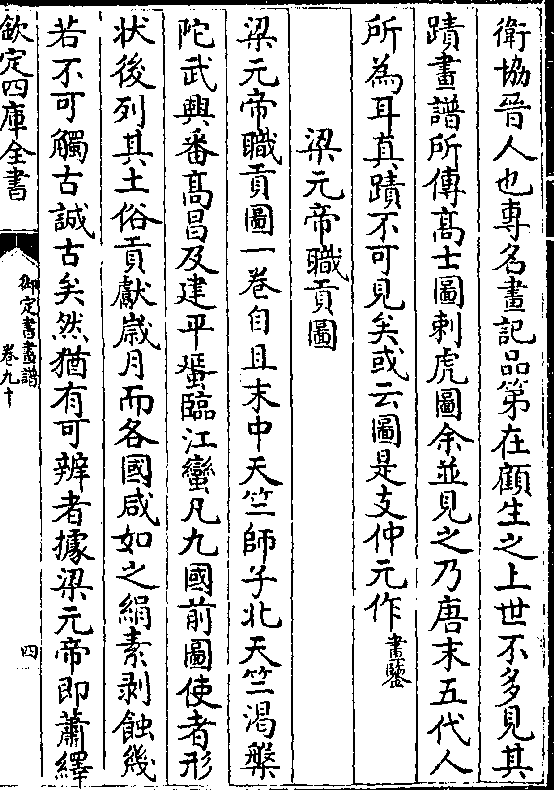 衛協晉人也專名畫記品第在顧生之上世不多見其
蹟畫譜所傳髙士圖刺虎圖余並見之乃唐末五代人
所為耳真蹟不可見矣或云圖是支仲元作畫鑒
梁元帝職貢圖
梁元帝職貢圖一卷自且末中天竺師子北天竺渴槃
陀武興番髙昌及建平蜑臨江蠻凡九國前圖使者形
状後列其土俗貢獻嵗月而各國咸如之絹素剥蝕幾
若不可觸古誠古矣然猶有可辨者據梁元帝即蕭繹
欽定四庫全書
御定書畫譜
卷九十
四